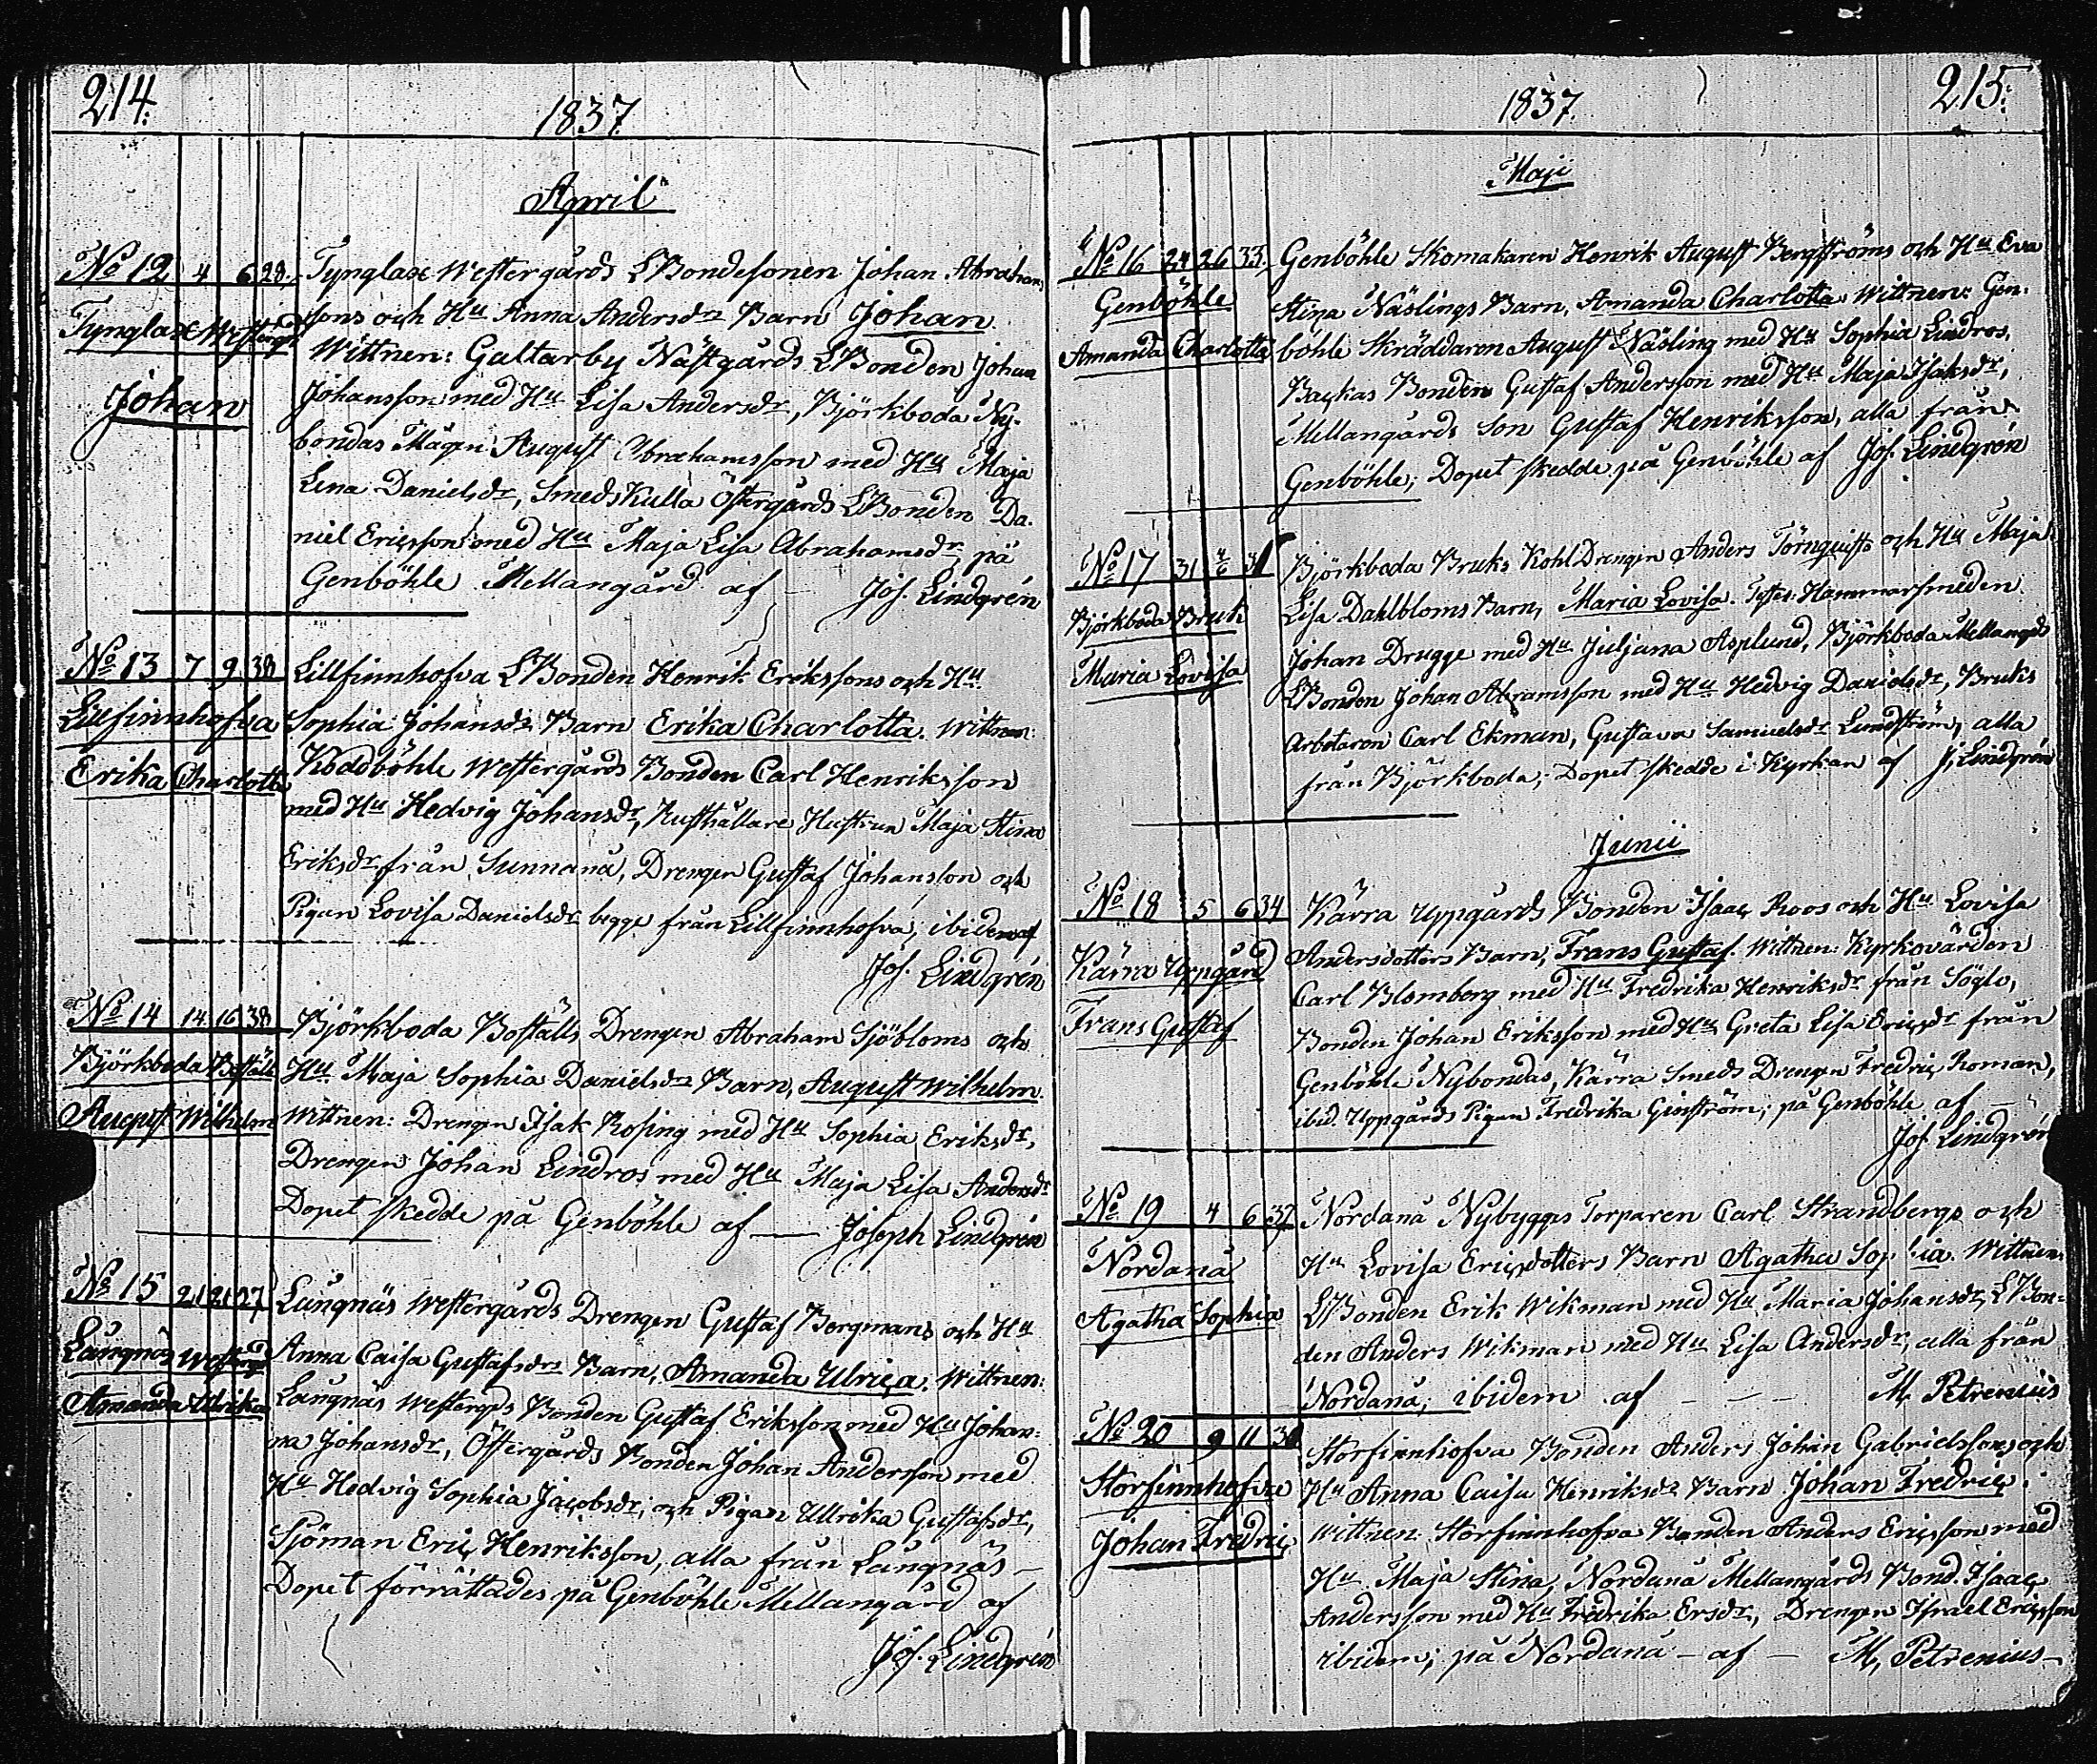 214.
1837.
April
No 12 4 6 28.
Tynglax Westergd
Johan
Tynglax Westergårds LBondesonen Johan Abrahams
sons och Hu Anna Andersdrs Barn Johan.
Wittnen: Galtarby Nästgårds LBonden Johan
Johansson med Hu Lisa Andersdr, Björkboda Ny-
bondas Mågen August Abrahamsson med Hu Maja
Lena Danielsdr, Smedskulla Östergårds LBonden Da-
niel Ericsson med Hu Maja Lisa Abrahamsdr, på
Genböhle Mellangård af — Jos. Lindgrén
No 13 7 9 38
Lillfinnhofva
Erika Charlotta
Lillfinnhofva LBonden Henrik Erikssons och Hu
Sophia Johansdrs Barn Erika Charlotta. Wittnen:
Koddböhle Westergårds Bonden Carl Henriksson
med Hu Hedvig Johansdr, Rusthållare Hustrun Maja Stina
Eriksdr från Sunnanå, Drengen Gustaf Johansson och
Pigan Lovisa Danielsdr begge från Lillfinnhofva, ibidem af
Jos. Lindgrén
No 14 14 16 38
Björkboda Boställ
August Wilhelm
Björkboda Boställs Drengen Abraham Sjöbloms och
Hu Maja Sophia Danielsdrs Barn, August Wilhelm.
Wittnen: Drengen Isak Rosing med Hu Sophia Eriksdr,
Drengen Johan Lindros med Hu Maja Lisa Andersdr
Dopet skedde på Genböhle af — Joseph Lindgrén
No 15 21 21 27
Långnäs Westergd
Amanda Ulrika
Långnäs Westergårds Drengen Gustaf Bergmans och Hu
Anna Caisa Gustafsdrs Barn, Amanda Ulrica. Wittnen:
Långnäs Westergds Bonden Gustaf Eriksson med Hu Johan-
na Johansdr, Östergårds Bonden Johan Andersson med
Hu Hedvig Sophia Jacobsdr, och Pigan Ullrika Gustafsdr,
Sjöman Eric Henriksson, alla från Långnäs —
Dopet förrättades på Genböhle Mellangård af
Jos. Lindgrén
215.
1837.
Maji
No 16 24 26 33.
Genböhle
Amanda Charlotta
Genböhle Skomakaren Henrik August Bergströms och Hu Eva
Stina Näslings Barn, Amanda Charlotta. Wittnen: Gen-
böhle Skräddaren August Näsling med Hu Sophia Lindros,
Backas Bonden Gustaf Andersson med Hu Maja Isaksdr,
Mellangårds Son Gustaf Henriksson, alla från
Genböhle; Dopet skedde på Genböhle af Jos. Lindgrén
No 17 31 4/6 31
Björkboda Bruk
Maria Lovisa
Björkboda Bruks KohlDrengen Anders Törnquists och Hu Maja
Lisa Dahlbloms Barn, Maria Lovisa. Testes: Hammarsmeden
Johan Drugge med Hu Juljana Asplund, Björkboda Mellangds
LBonden Johan Abramsson med Hu Hedvig Danielsdr, Bruks
Arbetaren Carl Ekman, Gustava Samuelsdr Lundström, alla
från Björkboda; Dopet skedde i Kyrkan af J. Lindgrén
Junii
No 18 5 6 34
Kärra Uppgård
Frans Gustaf
Kärra Uppgårds Bonden Isaac Roos och Hu Lovisa
Andersdotters Barn, Frans Gustaf. Wittnen: Kyrkovärden
Carl Blomberg med Hu Fredrika Henriksdr från Söglo,
Bonden Johan Eriksson med Hu Greta Lisa Ericsdr från
Genböhle Nybondas, Kärra Smeds Drengen Fredric Roman,
ibid. Uppgårds Pigan Fredrika Ginström; på Genböhle af —
Jos. Lindgrén
No 19 4 6 37
Nordanå
Agatha Sophia
Nordanå Nybygges Torparen Carl Strandbergs och
Hu Lovisa Ericsdotters Barn Agatha Sophia. Wittnen:
LBonden Erik Wikman med Hu Maria Johansdr, LBon-
den Anders Wikman med Hu Lisa Andersdr, alla från
Nordanå, ibidem af — — M. Petrenius
No 20 9 11 30
Storfinnhofva
Johan Fredric
Storfinnhofva Bonden Anders Johan Gabrielssons och
Hu Anna Caisa Henriksdrs Barn Johan Fredric.
Wittnen: Storfinnhofva Bonden Anders Ericsson med
Hu Maja Stina, Nordanå Mellangårds Bond. Isaac
Andersson med Hu Fredrika Ersdr, Drengen Israel Ericsson
ibidem; på Nordanå — af — M. Petrenius —